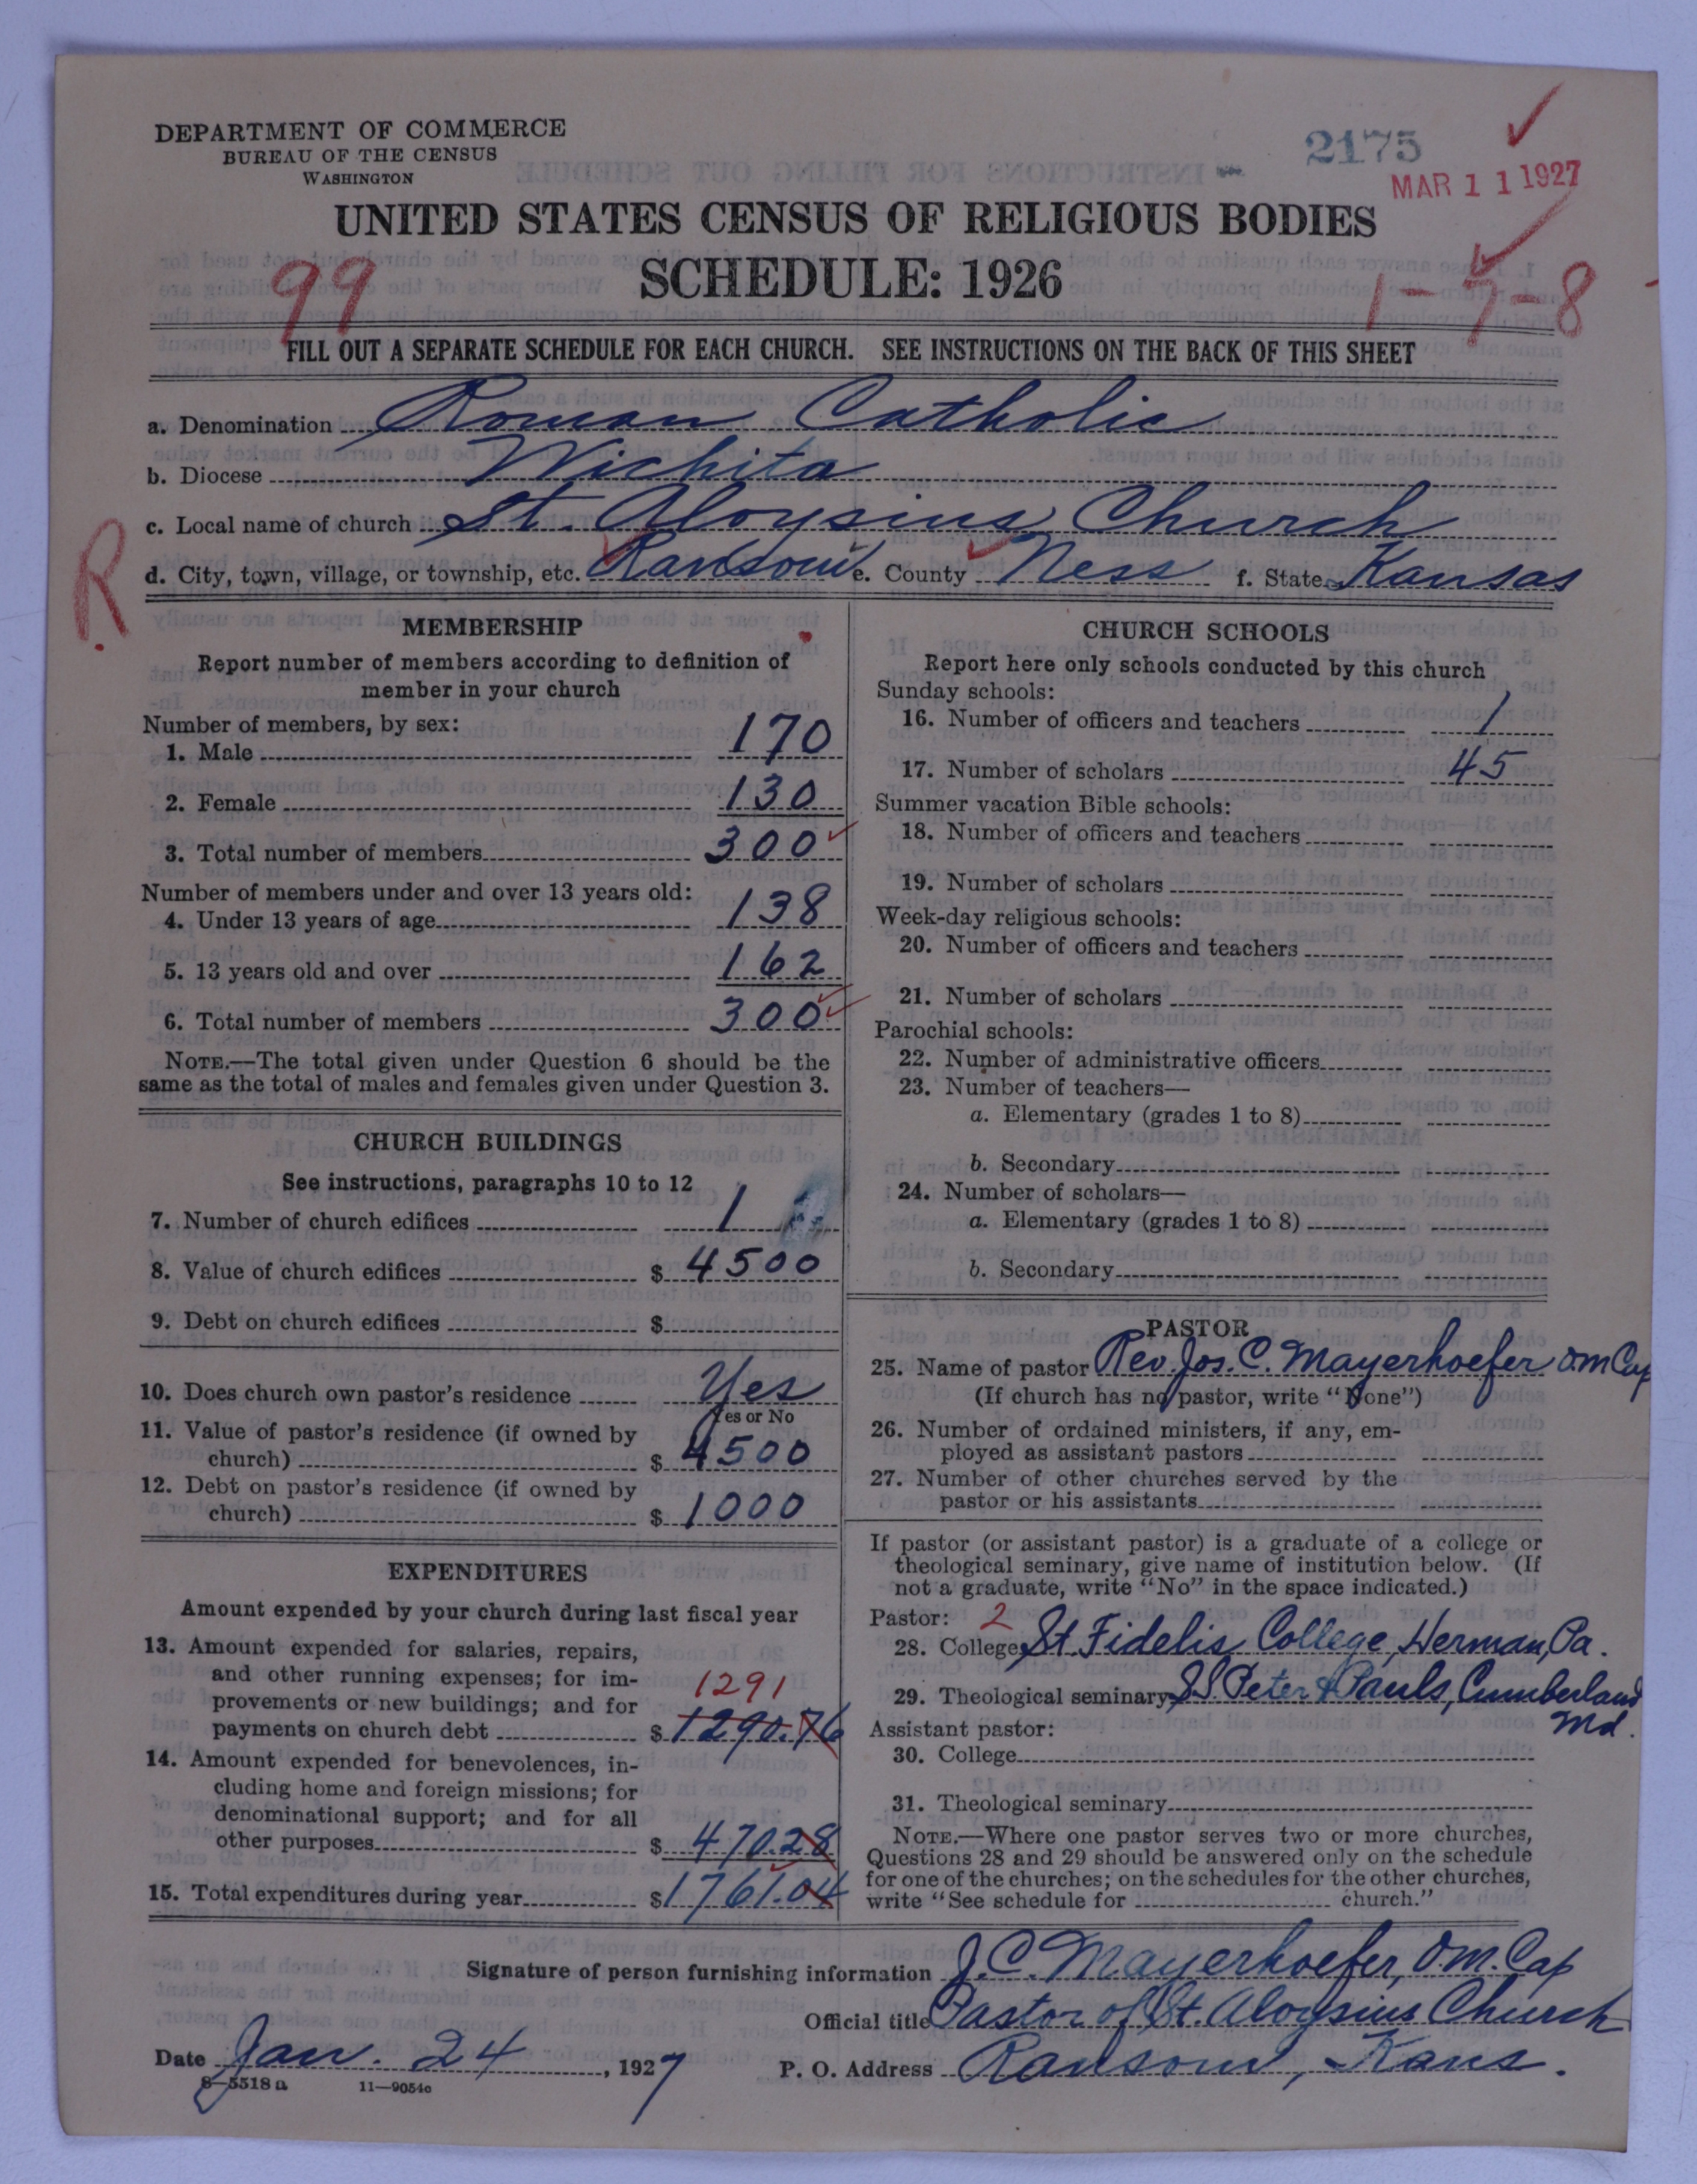 DEPARTMENT OF COMMERCE
BUREAU OF THE CENSUS
WASHINGTON
2175
MAR 11 1927
UNITED STATES CENSUS OF RELIGIOUS BODIES
SCHEDULE: 1926
99
1-7-8
FILL OUT A SEPARATE SCHEDULE FOR EACH CHURCH. SEE INSTRUCTIONS ON THE BACK OF THIS SHEET
a. Denomination Roman Catholic
b. Diocese Wichita
c. Local name of church St. Aloysius Church
R
d. City, town, village, or township, etc. Ransom e. County Ness f. State Kansas
MEMBERSHIP
Report number of members according to definition of
member in your church
Number of members, by sex:
1. Male 170
2. Female 130
3. Total number of members 300
Number of members under and over 13 years old:
4. Under 13 years of age 138
5. 13 years old and over 162
6. Total number of members 300
NOTE.—The total given under Question 6 should be the
same as the total of males and females given under Question 3.
CHURCH BUILDINGS
See instructions, paragraphs 10 to 12
7. Number of church edifices 1
8. Value of church edifices $ 4500
9. Debt on church edifices $
10. Does church own pastor's residence Yes
Yes or No
11. Value of pastor's residence (if owned by
church) $ 4500
12. Debt on pastor's residence (if owned by
church) $ 1000
EXPENDITURES
Amount expended by your church during last fiscal year
13. Amount expended for salaries, repairs,
and other running expenses; for im-
provements or new buildings; and for 1291
payments on church debt $ 1290.76
14. Amount expended for benevolences, in-
cluding home and foreign missions; for
denominational support; and for all
other purposes $ 470.28
15. Total expenditures during year $ 1761.04
CHURCH SCHOOLS
Report here only schools conducted by this church
Sunday schools:
16. Number of officers and teachers 1
17. Number of scholars 45
Summer vacation Bible schools:
18. Number of officers and teachers
19. Number of scholars
Week-day religious schools:
20. Number of officers and teachers
21. Number of scholars
Parochial schools:
22. Number of administrative officers
23. Number of teachers—
a. Elementary (grades 1 to 8)
b. Secondary
24. Number of scholars—
a. Elementary (grades 1 to 8)
b. Secondary
PASTOR
25. Name of pastor Rev. Jos. C. Mayerhoefer O M Cap
(If church has no pastor, write "None")
26. Number of ordained ministers, if any, em-
ployed as assistant pastors
27. Number of other churches served by the
pastor or his assistants
If pastor (or assistant pastor) is a graduate of a college or
theological seminary, give name of institution below. (If
not a graduate, write "No" in the space indicated.)
Pastor: 2
28. College St. Fidelis College, Herman, Pa.
29. Theological seminary SS. Peter & Pauls, Cumberland
Md.
Assistant pastor:
30. College
31. Theological seminary
NOTE.—Where one pastor serves two or more churches,
Questions 28 and 29 should be answered only on the schedule
for one of the churches; on the schedules for the other churches,
write "See schedule for church."
Signature of person furnishing information J. C. Mayerhoefer, O.M. Cap
Official title Pastor of St. Aloysius Church
Date Jan. 24, 1927 P. O. Address Ransom, Kans.
8—5518 a 11—9054c